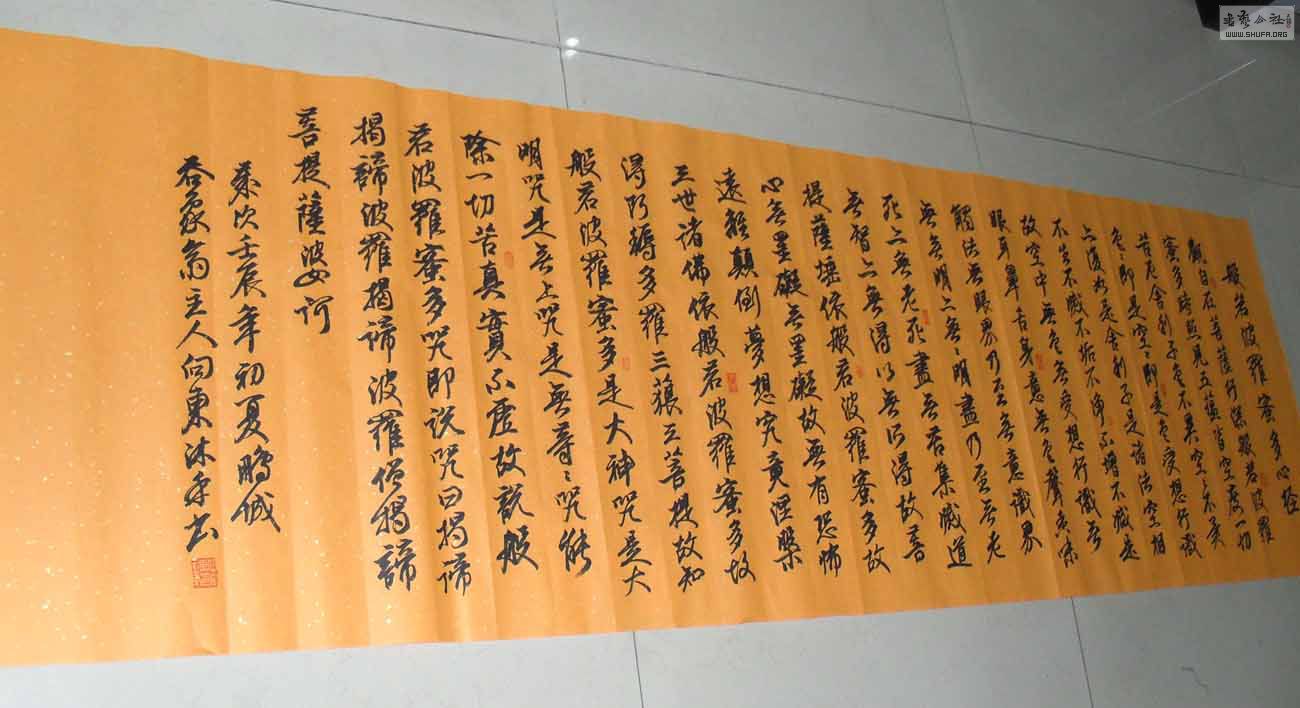 般若波羅蜜多心经
觀自在菩薩行深般若波羅
蜜多時照見五蕴皆空度一切
苦厄舍利子色不異空空不異
色色即是空空即是色受想行識
亦復如是舍利子是諸法空相
不生不滅不垢不净不增不减是
故空中無色無受想行識無
眼耳鼻舌身意無色聲香味
觸法無眼界乃至無意識界
無無明亦無無明盡乃至無老
死亦無老死盡無苦集滅道
無智亦無得以無所得故菩
提薩埵依般若波羅蜜多故
心無罣礙無罣礙故無有恐怖
遠離顛倒夢想究竟涅槃
三世諸佛依般若波羅蜜多故
得阿耨多羅三藐三菩提故知
般若波羅蜜多是大神咒是大
明咒是無上咒是無等等咒能
除一切苦真實不虛故説般
若波羅蜜多咒即説咒曰揭諦
揭諦波羅揭諦波羅僧揭諦
菩提薩婆訶
歲次壬辰年初夏鵬城
主人向東沐手书
書藝公社
WWW.SHUFA.ORG